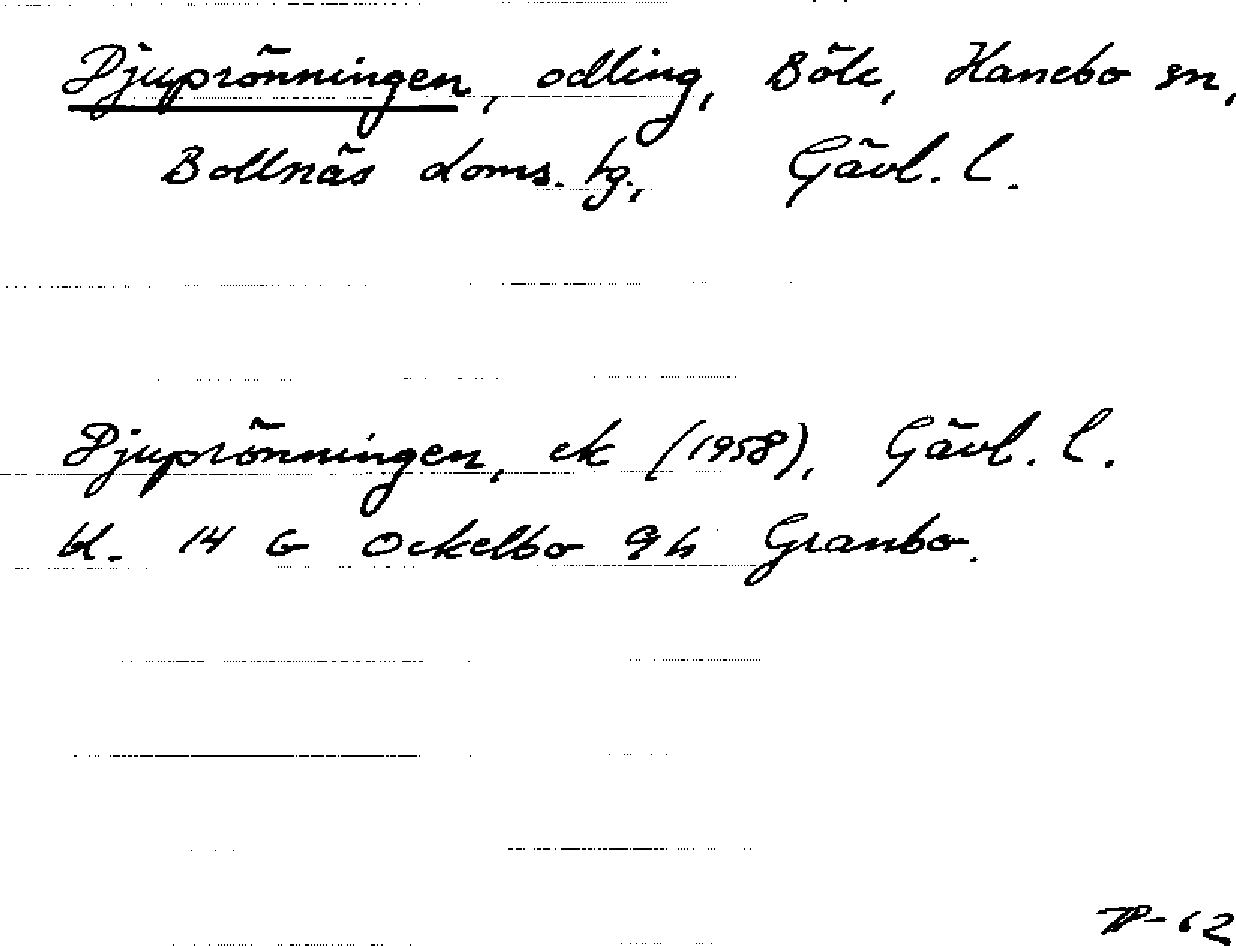 Djuprönningen, odling, Böle, Hanebo sn,
Bollnäs doms. tg, Gävl. l.
Djuprönningen, ek (1958), Gävl. l.
bl. 14 G Ockelbo 9 h Granbo.
-62